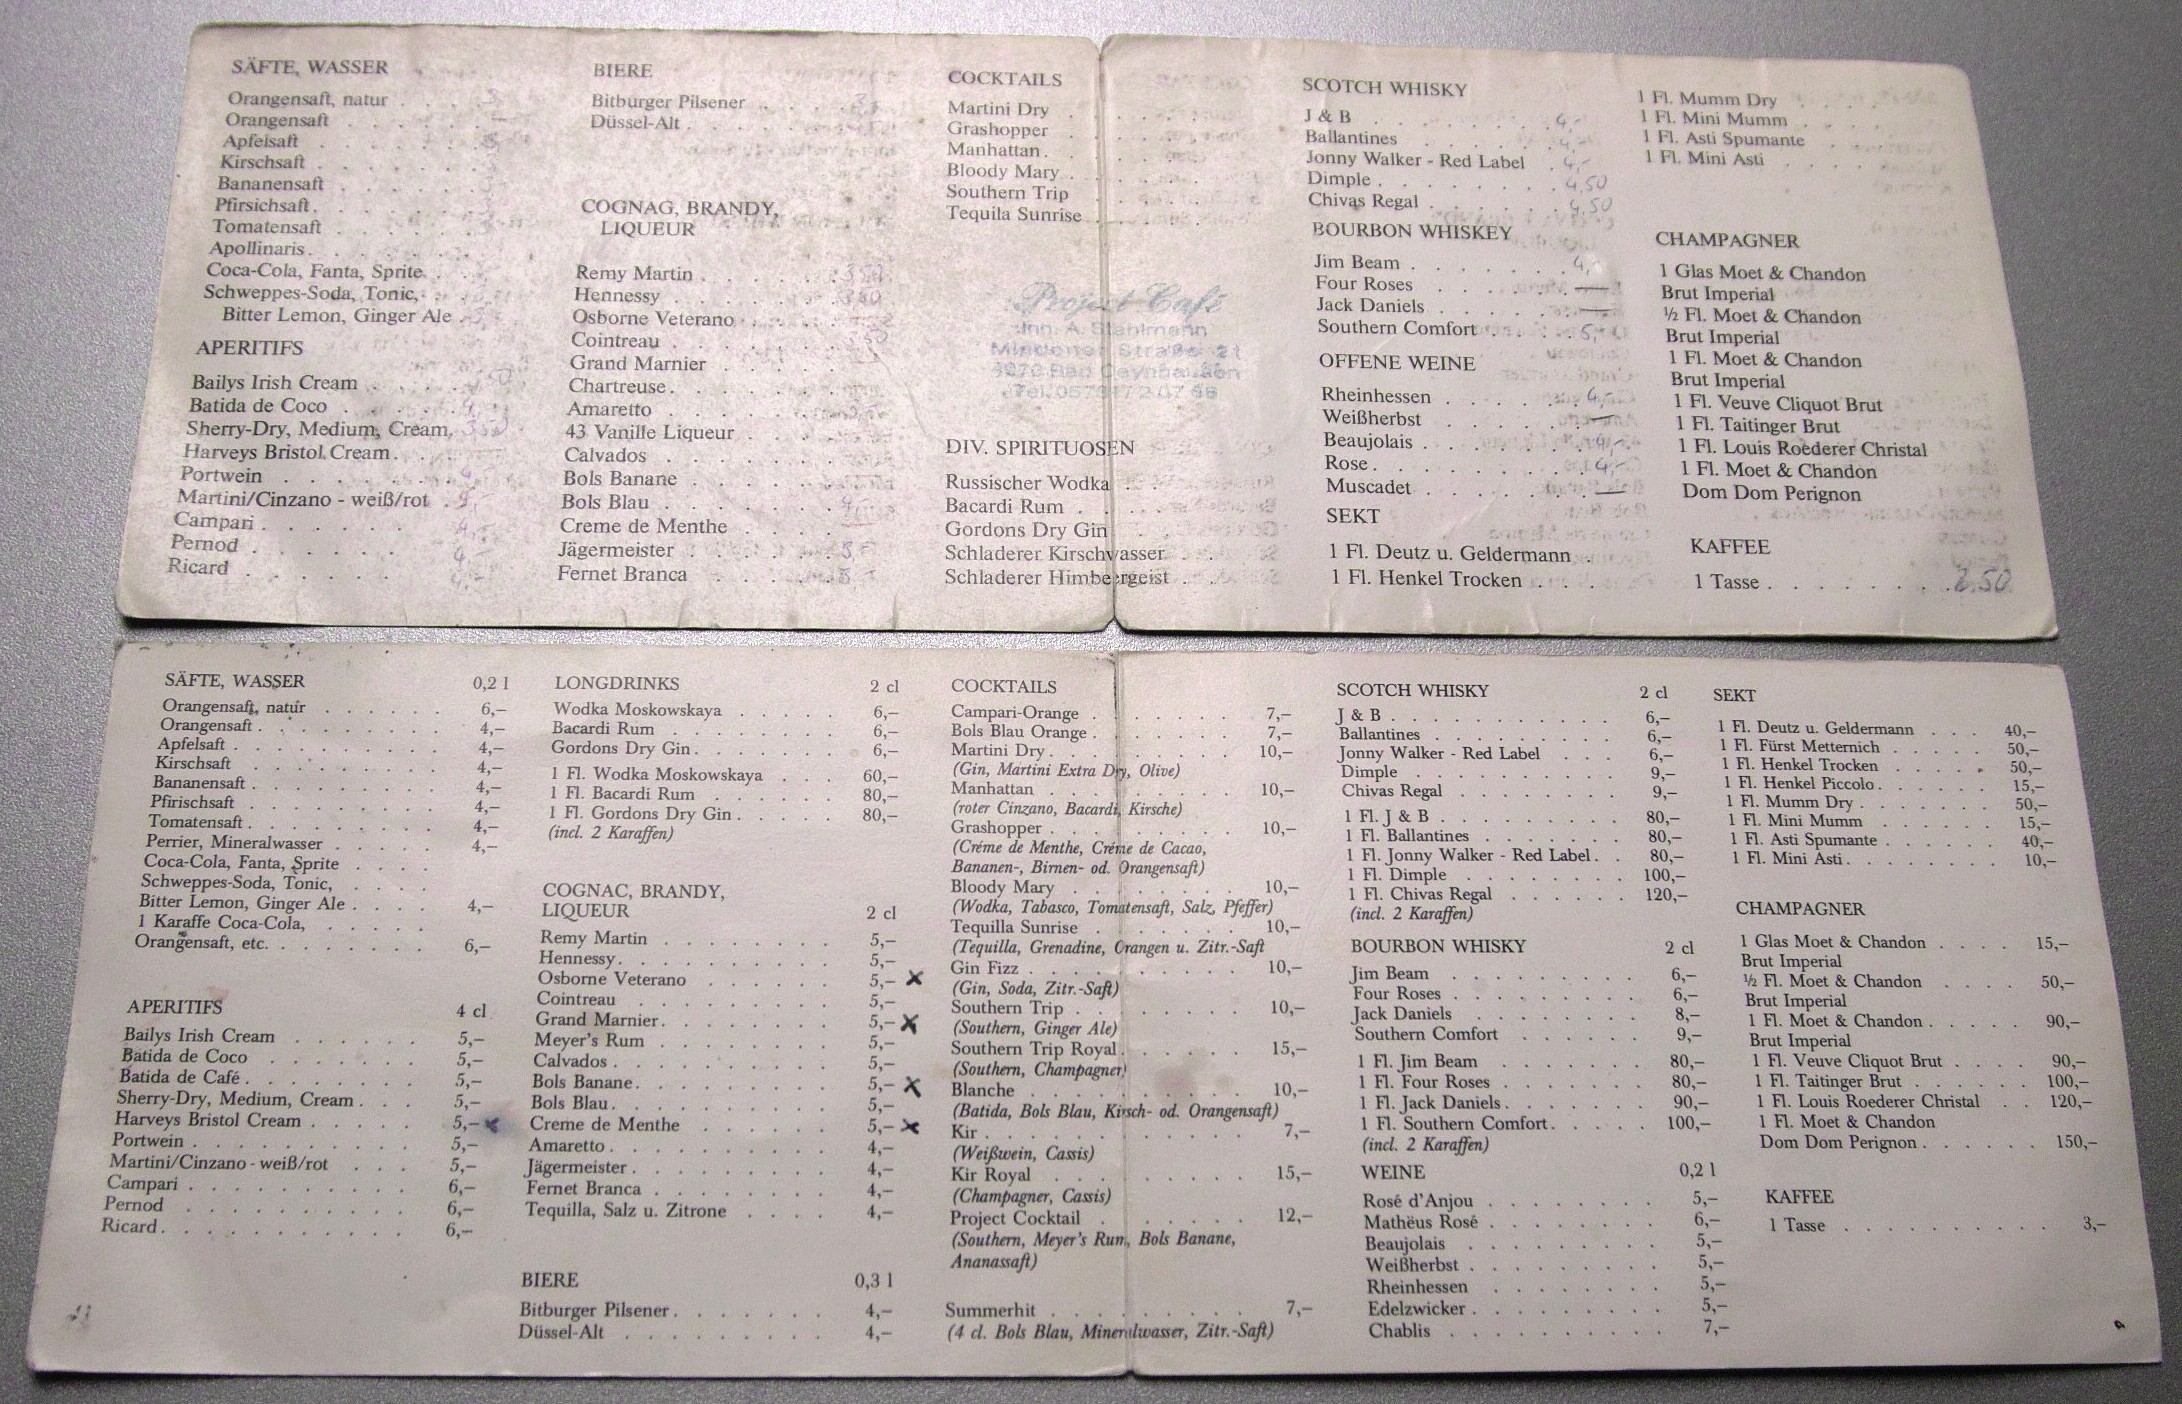 SÄFTE, WASSER
Orangensaft, natur . . . 3
Orangensaft
Apfelsaft
Kirschsaft
Bananensaft
Pfirsichsaft.
Tomatensaft
Apollinaris
Coca-Cola, Fanta, Sprite
Schweppes-Soda, Tonic,
Bitter Lemon, Ginger Ale
APERITIFS
Bailys Irish Cream
Batida de Coco
Sherry-Dry, Medium, Cream,
Harveys Bristol Cream
Portwein
Martini/Cinzano - weiß/rot
Campari
Pernod
Ricard
BIERE
Bitburger Pilsener
Düssel-Alt
COGNAG, BRANDY,
LIQUEUR
Remy Martin
Hennessy
Osborne Veterano
Cointreau
Grand Marnier
Chartreuse
Amaretto
43 Vanille Liqueur
Calvados
Bols Banane
Bols Blau
Creme de Menthe
Jägermeister
Fernet Branca
COCKTAILS
Martini Dry
Grashopper
Manhattan
Bloody Mary
Southern Trip
Tequila Sunrise
Project Café
Inh. A. Stahlmann
Mindener Straße 21
4970 Bad Oeynhausen
DIV. SPIRITUOSEN
Russischer Wodka
Bacardi Rum
Gordons Dry Gin
Schladerer Kirschwasser
Schladerer Himbeergeist
SCOTCH WHISKY
J & B 4,-
Ballantines 4,-
Jonny Walker - Red Label 4,-
Dimple 4,50
Chivas Regal 4,50
BOURBON WHISKEY
Jim Beam 4,-
Four Roses —
Jack Daniels —
Southern Comfort
OFFENE WEINE
Rheinhessen 4,-
Weißherbst —
Beaujolais 4,-
Rose 4,-
Muscadet —
SEKT
1 Fl. Deutz u. Geldermann
1 Fl. Henkel Trocken
1 Fl. Mumm Dry
1 Fl. Mini Mumm
1 Fl. Asti Spumante
1 Fl. Mini Asti
CHAMPAGNER
1 Glas Moet & Chandon
Brut Imperial
½ Fl. Moet & Chandon
Brut Imperial
1 Fl. Moet & Chandon
Brut Imperial
1 Fl. Veuve Cliquot Brut
1 Fl. Taitinger Brut
1 Fl. Louis Roederer Christal
1 Fl. Moet & Chandon
Dom Dom Perignon
KAFFEE
1 Tasse 2.50
SÄFTE, WASSER 0,2 l
Orangensaft, natur 6,–
Orangensaft 4,–
Apfelsaft 4,–
Kirschsaft 4,–
Bananensaft 4,–
Pfirischsaft 4,–
Tomatensaft 4,–
Perrier, Mineralwasser 4,–
Coca-Cola, Fanta, Sprite
Schweppes-Soda, Tonic,
Bitter Lemon, Ginger Ale 4,–
1 Karaffe Coca-Cola,
Orangensaft, etc. 6,–
APERITIFS 4 cl
Bailys Irish Cream 5,–
Batida de Coco 5,–
Batida de Café 5,–
Sherry-Dry, Medium, Cream 5,–
Harveys Bristol Cream 5,– x
Portwein 5,–
Martini/Cinzano - weiß/rot 5,–
Campari 6,–
Pernod 6,–
Ricard 6,–
LONGDRINKS 2 cl
Wodka Moskowskaya 6,–
Bacardi Rum 6,–
Gordons Dry Gin 6,–
1 Fl. Wodka Moskowskaya 60,–
1 Fl. Bacardi Rum 80,–
1 Fl. Gordons Dry Gin 80,–
(incl. 2 Karaffen)
COGNAC, BRANDY,
LIQUEUR 2 cl
Remy Martin 5,–
Hennessy 5,–
Osborne Veterano 5,– x
Cointreau 5,–
Grand Marnier 5,– x
Meyer's Rum 5,–
Calvados 5,–
Bols Banane 5,– x
Bols Blau 5,–
Creme de Menthe 5,– x
Amaretto 4,–
Jägermeister 4,–
Fernet Branca 4,–
Tequilla, Salz u. Zitrone 4,–
BIERE 0,3 l
Bitburger Pilsener 4,–
Düssel-Alt 4,–
COCKTAILS
Campari-Orange 7,–
Bols Blau Orange 7,–
Martini Dry 10,–
(Gin, Martini Extra Dry, Olive)
Manhattan 10,–
(roter Cinzano, Bacardi, Kirsche)
Grashopper 10,–
(Créme de Menthe, Créme de Cacao,
Bananen-, Birnen- od. Orangensaft)
Bloody Mary 10,–
(Wodka, Tabasco, Tomatensaft, Salz, Pfeffer)
Tequilla Sunrise 10,–
(Tequilla, Grenadine, Orangen u. Zitr.-Saft
Gin Fizz 10,–
(Gin, Soda, Zitr.-Saft)
Southern Trip 10,–
(Southern, Ginger Ale)
Southern Trip Royal 15,–
(Southern, Champagner)
Blanche 10,–
(Batida, Bols Blau, Kirsch- od. Orangensaft)
Kir 7,–
(Weißwein, Cassis)
Kir Royal 15,–
(Champagner, Cassis)
Project Cocktail 12,–
(Southern, Meyer's Rum, Bols Banane,
Ananassaft)
Summerhit 7,–
(4 cl. Bols Blau, Mineralwasser, Zitr.-Saft)
SCOTCH WHISKY 2 cl
J & B 6,–
Ballantines 6,–
Jonny Walker - Red Label 6,–
Dimple 9,–
Chivas Regal 9,–
1 Fl. J & B 80,–
1 Fl. Ballantines 80,–
1 Fl. Jonny Walker - Red Label 80,–
1 Fl. Dimple 100,–
1 Fl. Chivas Regal 120,–
(incl. 2 Karaffen)
BOURBON WHISKY 2 cl
Jim Beam 6,–
Four Roses 6,–
Jack Daniels 8,–
Southern Comfort 9,–
1 Fl. Jim Beam 80,–
1 Fl. Four Roses 80,–
1 Fl. Jack Daniels 90,–
1 Fl. Southern Comfort 100,–
(incl. 2 Karaffen)
WEINE 0,2 l
Rosé d'Anjou 5,–
Mathëus Rosé 6,–
Beaujolais 5,–
Weißherbst 5,–
Rheinhessen 5,–
Edelzwicker 5,–
Chablis 7,–
SEKT
1 Fl. Deutz u. Geldermann 40,–
1 Fl. Fürst Metternich 50,–
1 Fl. Henkel Trocken 50,–
1 Fl. Henkel Piccolo 15,–
1 Fl. Mumm Dry 50,–
1 Fl. Mini Mumm 15,–
1 Fl. Asti Spumante 40,–
1 Fl. Mini Asti 10,–
CHAMPAGNER
1 Glas Moet & Chandon 15,–
Brut Imperial
½ Fl. Moet & Chandon 50,–
Brut Imperial
1 Fl. Moet & Chandon 90,–
Brut Imperial
1 Fl. Veuve Cliquot Brut 90,–
1 Fl. Taitinger Brut 100,–
1 Fl. Louis Roederer Christal 120,–
1 Fl. Moet & Chandon
Dom Dom Perignon 150,–
KAFFEE
1 Tasse 3,–